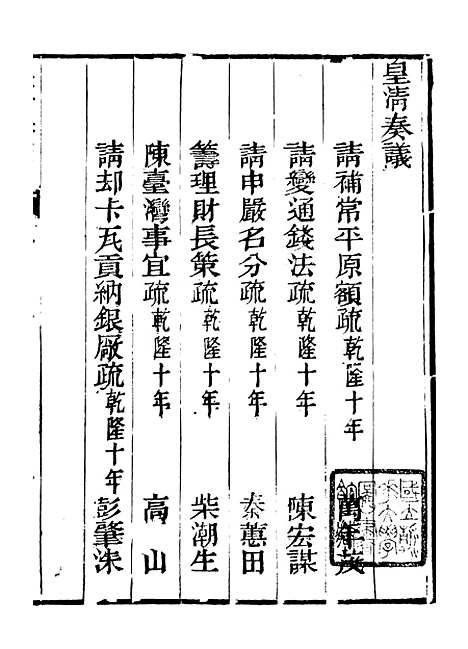 皇清奏議
請補常平原額疏乾隆十年 萬年茂
請變通錢法疏乾隆十年 陳宏謀
請申嚴名分疏乾隆十年 秦蕙田
籌理財長策疏乾隆十年 柴潮生
陳臺灣事宜疏乾隆十年 高山
請却卡瓦貢納銀厰疏乾隆十年彭肇洙